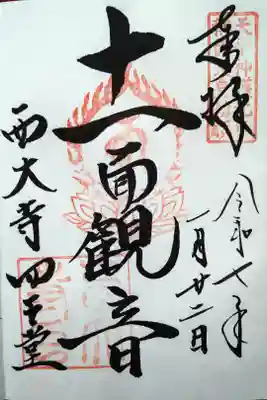 奉拝
令和七年
一月廿二日
十一面観音
西大寺四王堂